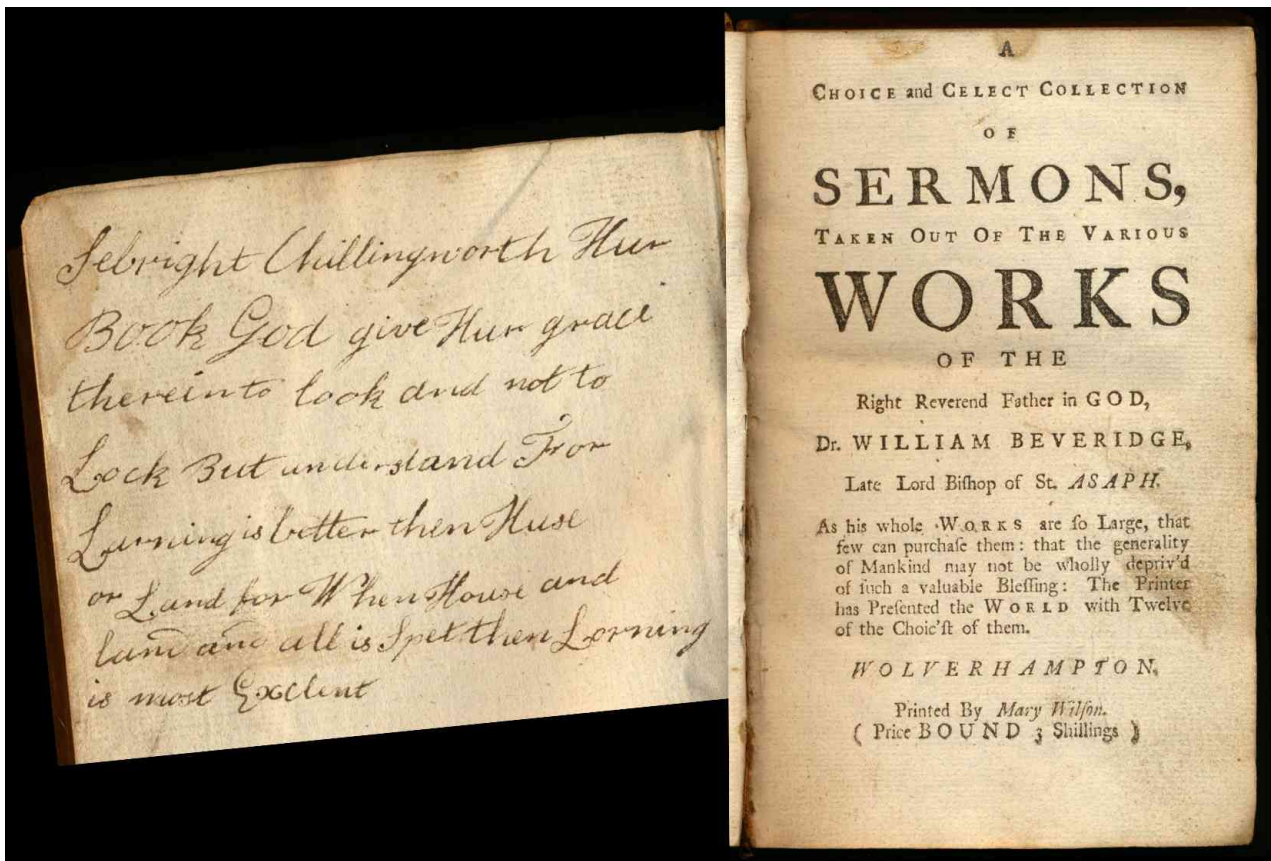 Sebright Chillingworth Hur
Book God give Hur grace
therein to look and not to
Lock But understand For
Lurning is better then Huse
or Land for When House and
land and all is Spet then Lorning
is most Exclent
A
CHOICE and CELECT COLLECTION
OF
SERMONS,
TAKEN OUT OF THE VARIOUS
WORKS
OF THE
Right Reverend Father in GOD,
Dr. WILLIAM BEVERIDGE,
Late Lord Biſhop of St. ASAPH.
As his whole WORKS are ſo Large, that
few can purchaſe them: that the generality
of Mankind may not be wholly depriv'd
of ſuch a valuable Bleſſing: The Printer
has Preſented the WORLD with Twelve
of the Choic'ſt of them.
WOLVERHAMPTON,
Printed By Mary Wilſon.
( Price BOUND 3 Shillings )